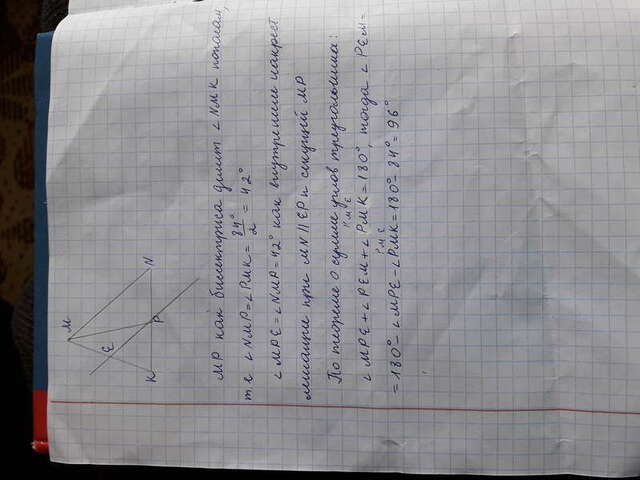 M
N
E
P
K
MP как биссектриса делит ∠NMK пополам,
т.е ∠NMP=∠PMK= 84°/2 = 42°
∠MPE=∠NMP=42° как внутренние накрест
лежащие при MN||EP и секущей MP
По теореме о сумме углов треугольника:
∠MPE+∠PEM+∠PMK=180°, тогда ∠PEM=
=180°-∠MPE-∠PMK=180°-84°=96°